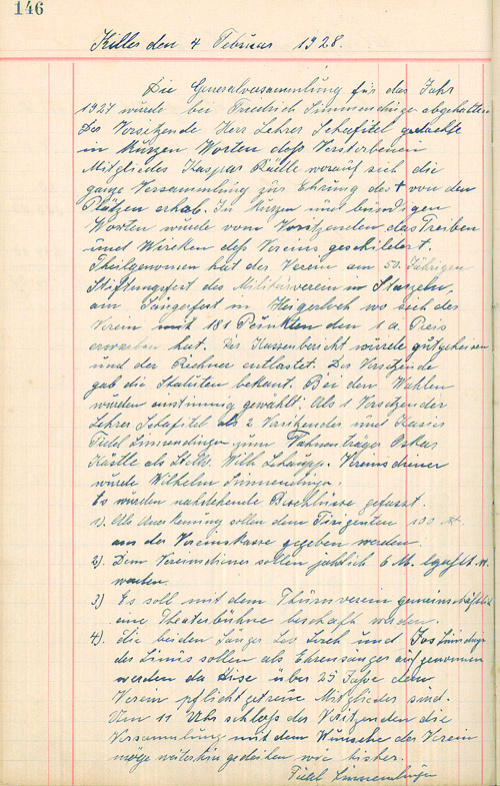 146
Killer den 4 Februar 1928.
Die Generalversammlung für das Jahr
1927 wurde bei Friedrich Simmendinger abgehalten
Der Vorsetzende Herr Lehrer Schafitel gedachte
in kurzen Worten dess Verstorbenen
Mitgliedes Kaspar worauf sich die
ganze Versammlung zur Ehrung des + von den
Plätzen erhob. In kurzen und bündigen
Worten wurde vom Vorsitzenden das Treiben
und Wirken dess Vereins geschildert.
Theilgenomen hat der Verein am 50. Jährigen
Stiftungsfest des Militärverein in Starzeln,
am Sängerfest in Heigerloch wo sich der
Verein mit 181 Punkten den 1 a. Preis
erworben hat. Der Kassenbericht wurde gutgeheisen
und der Rechner entlastet. Der Vorsetzende
gab die Statuten bekant. Bei den Wahlen
wurden einstimig gewählt: Als 1 Vorsetzender
Lehrer Schafitel als 2 Vorsitzender und Kasier
Fidel Simmendinger zum Fahnenträger Oskar
Kästle als Stellv. Wilh. Schaupp. Vereinsdiener
wurde Wilhelm Simmendinger.
Es wurden nahstehende Beschlüsse gefasst.
1). Als Anerkennung sollen dem Dirigenten 100 M.
aus der Vereinskasse gegeben werden.
2). Dem Vereinsdiener sollen jährlich 6 M. bezahlt
werden.
3) Es soll mit dem Thurnverein gemeinschäftlich
eine Theaterbühne beschaft werden.
4) die beiden Sänger Leo und Jos Simdinger
des sollen als Ehrensänger aufgenomen
werden da diese über 25 Jahre dem
Verein pflichtgetreue Mitglieder sind.
Um 11 Uhr schloss der Vorsitzenden die
Versammlung mit dem Wunsche der Verein
möge weiterhin gedeihen wie bisher.
Fidel Simmendinger